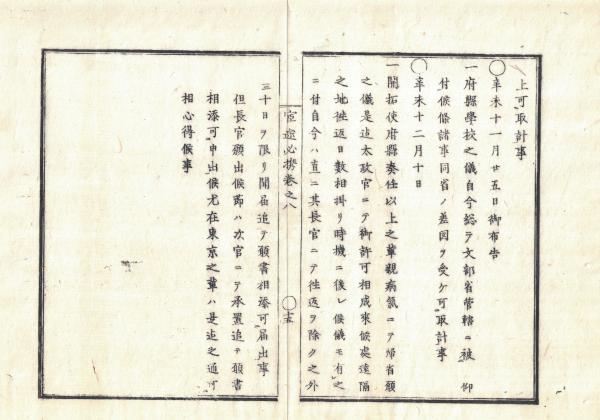 上可取計事
〇辛未十一月廿五日御布告
一府縣學校之儀自今総テ文部省管轄ニ被 仰
付候條諸事同省ノ差図ヲ受ケ可取計事
〇辛未十二月十日
一開拓使府縣奏任以上之輩親病氣ニテ帰省願
之儀是迠太政官ニテ御許可相成来候處遠隔
之地徃返日数相掛リ時機ニ後レ候儀モ有之
ニ付自今ハ直ニ其長官ニテ徃返ヲ除ク之外
官途必携巻之八
〇十五
三十日ヲ限リ聞届追テ願書相添可届出事
但長官願出候節ハ次官ニテ承置追テ願書
相添可申出候尤在東京之輩ハ是迠之通可
相心得候事